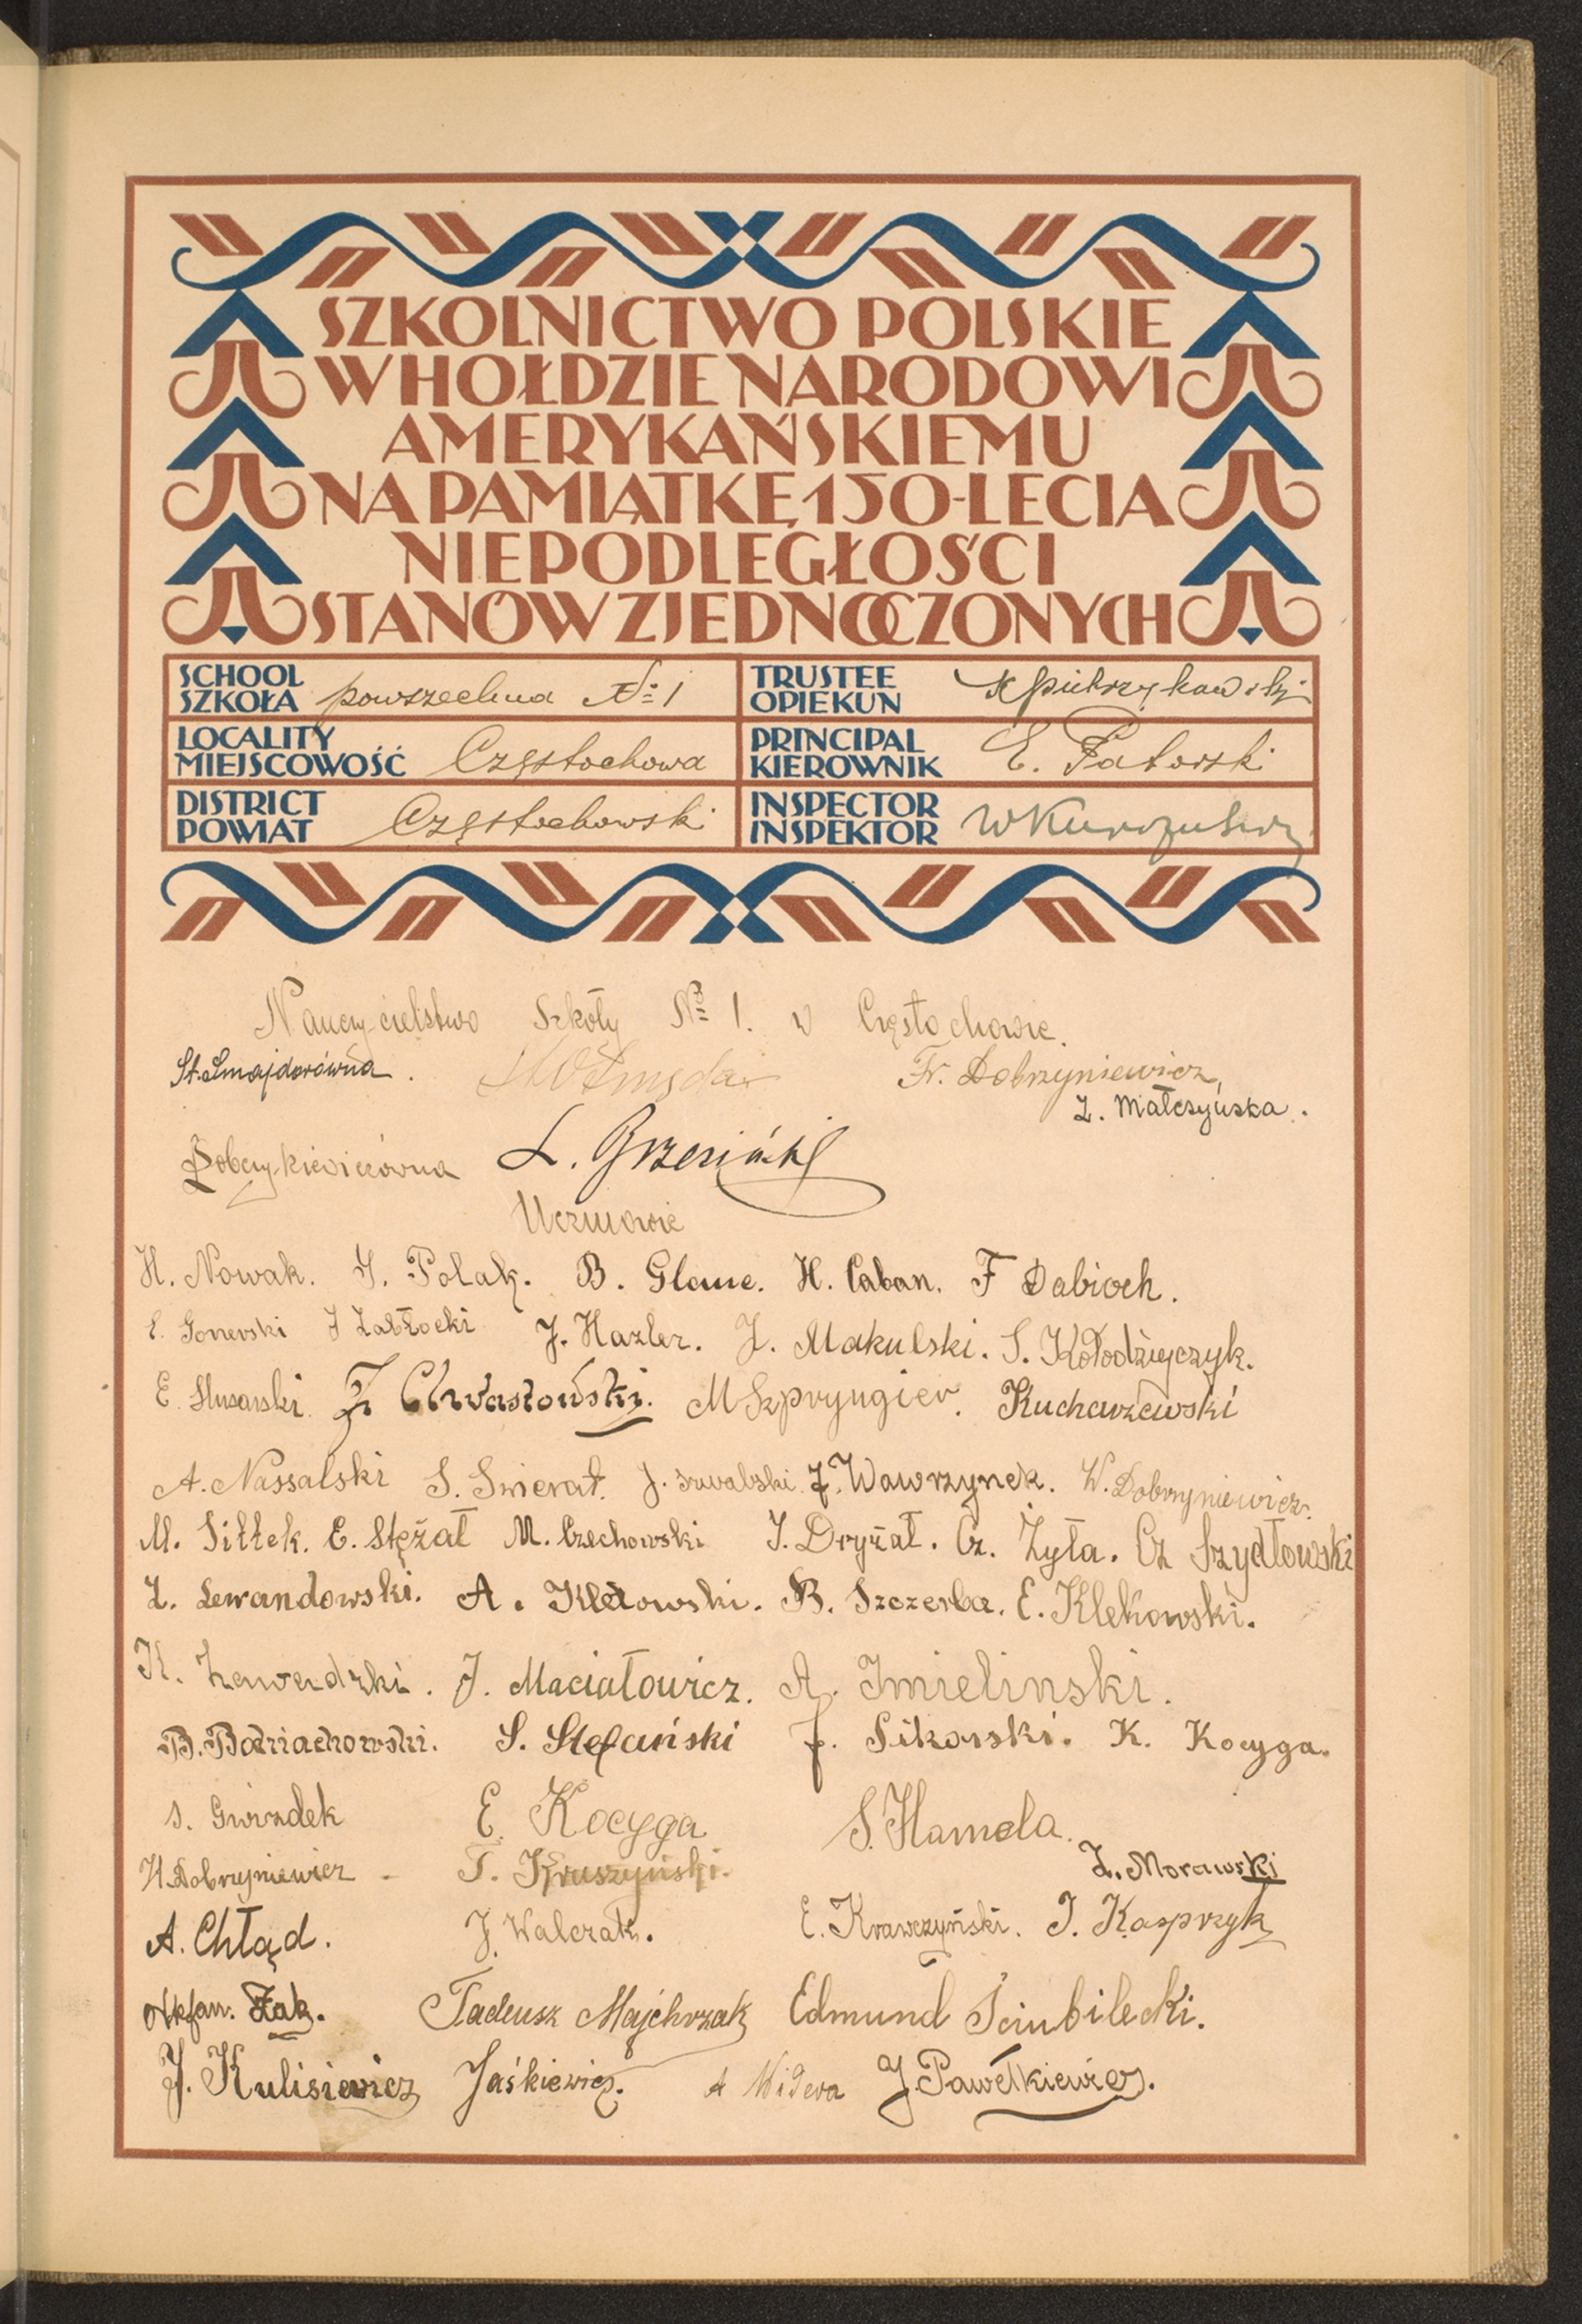 SZKOLNICTWO POLSKIE
W HOŁDZIE NARODOWI
AMERYKAŃSKIEMU
NA PAMIĄTKĘ 150-LECIA
NIEPODLEGŁOŚCI
STANÓW ZJEDNOCZONYCH
SCHOOL
SZKOŁA powszechna № 1
TRUSTEE
OPIEKUN
LOCALITY
MIEJSCOWOŚĆ Częstochowa
PRINCIPAL
KIEROWNIK E. Patorski
DISTRICT
POWIAT Częstochowski
INSPECTOR
INSPEKTOR
Nauczycielstwo Szkoły № 1. w Częstochowie.
St. Smajdorówna. Fr. Dobrzyniewicz,
Z. Małczyńska.
L. Brzeziński
Uczniowie
H. Nowak. J. Polak. B. Glanc. H. Caban. F Dabioch.
J Zabłocki J. Hazler. J. Makulski. S. Kołodziejczyk.
E. Slusarski. M Szpryngier. Kucharzewski
A. Nassalski S. Swierat. J. Suwalski. F. Wawrzynek. W. Dobrzyniewicz.
M. Sittek. E. Stężał M. Czechowski J. Dryżał. Cz. Żyła. Cz Szydłowski
Z. Lewandowski. A. Kletowski. B. Szczerba. E. Klekowski.
K. Zawadzki. J. Maciałowicz. A. Imielinski.
S. Stefański F. Sikorski. K. Kocyga.
S. Gwizdek E. Kocyga S. Hamela.
H. Dobrzyniewicz - T. Kruszyński. Z. Morawski
A. Chłąd. J. Walczak. E. Krawczyński. J. Kasprzyk
Stefan. Żak. Tadeusz Majchrzak Edmund Ściubilecki.
J. Kulisiewicz Jaśkiewicz. A Widera J. Pawełkiewicz.